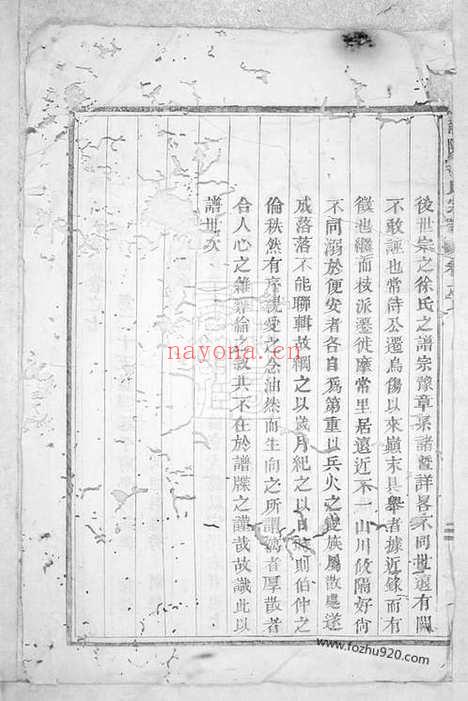 後世宗之徐氏之譜宗豫章棐諸暨詳畧不同世遠有闕
不敢誣也常侍公遷烏傷以來巔末具舉者據近錄而有
徵也繼而枝派遷徙靡常里居遠近不一山川敻隔好尚
不同溺於便安者各自爲第重以兵火之變族屬散處遂
成落落不能聯輯故綱之以歲月紀之以自始則伯仲之
倫秩然有序親愛之念油然而生向之所謂漓者厚散者
合人心之離彝倫之敦其不在於譜牒之講哉故識此以
譜世次
nayona.cn
www.fozhu920.com